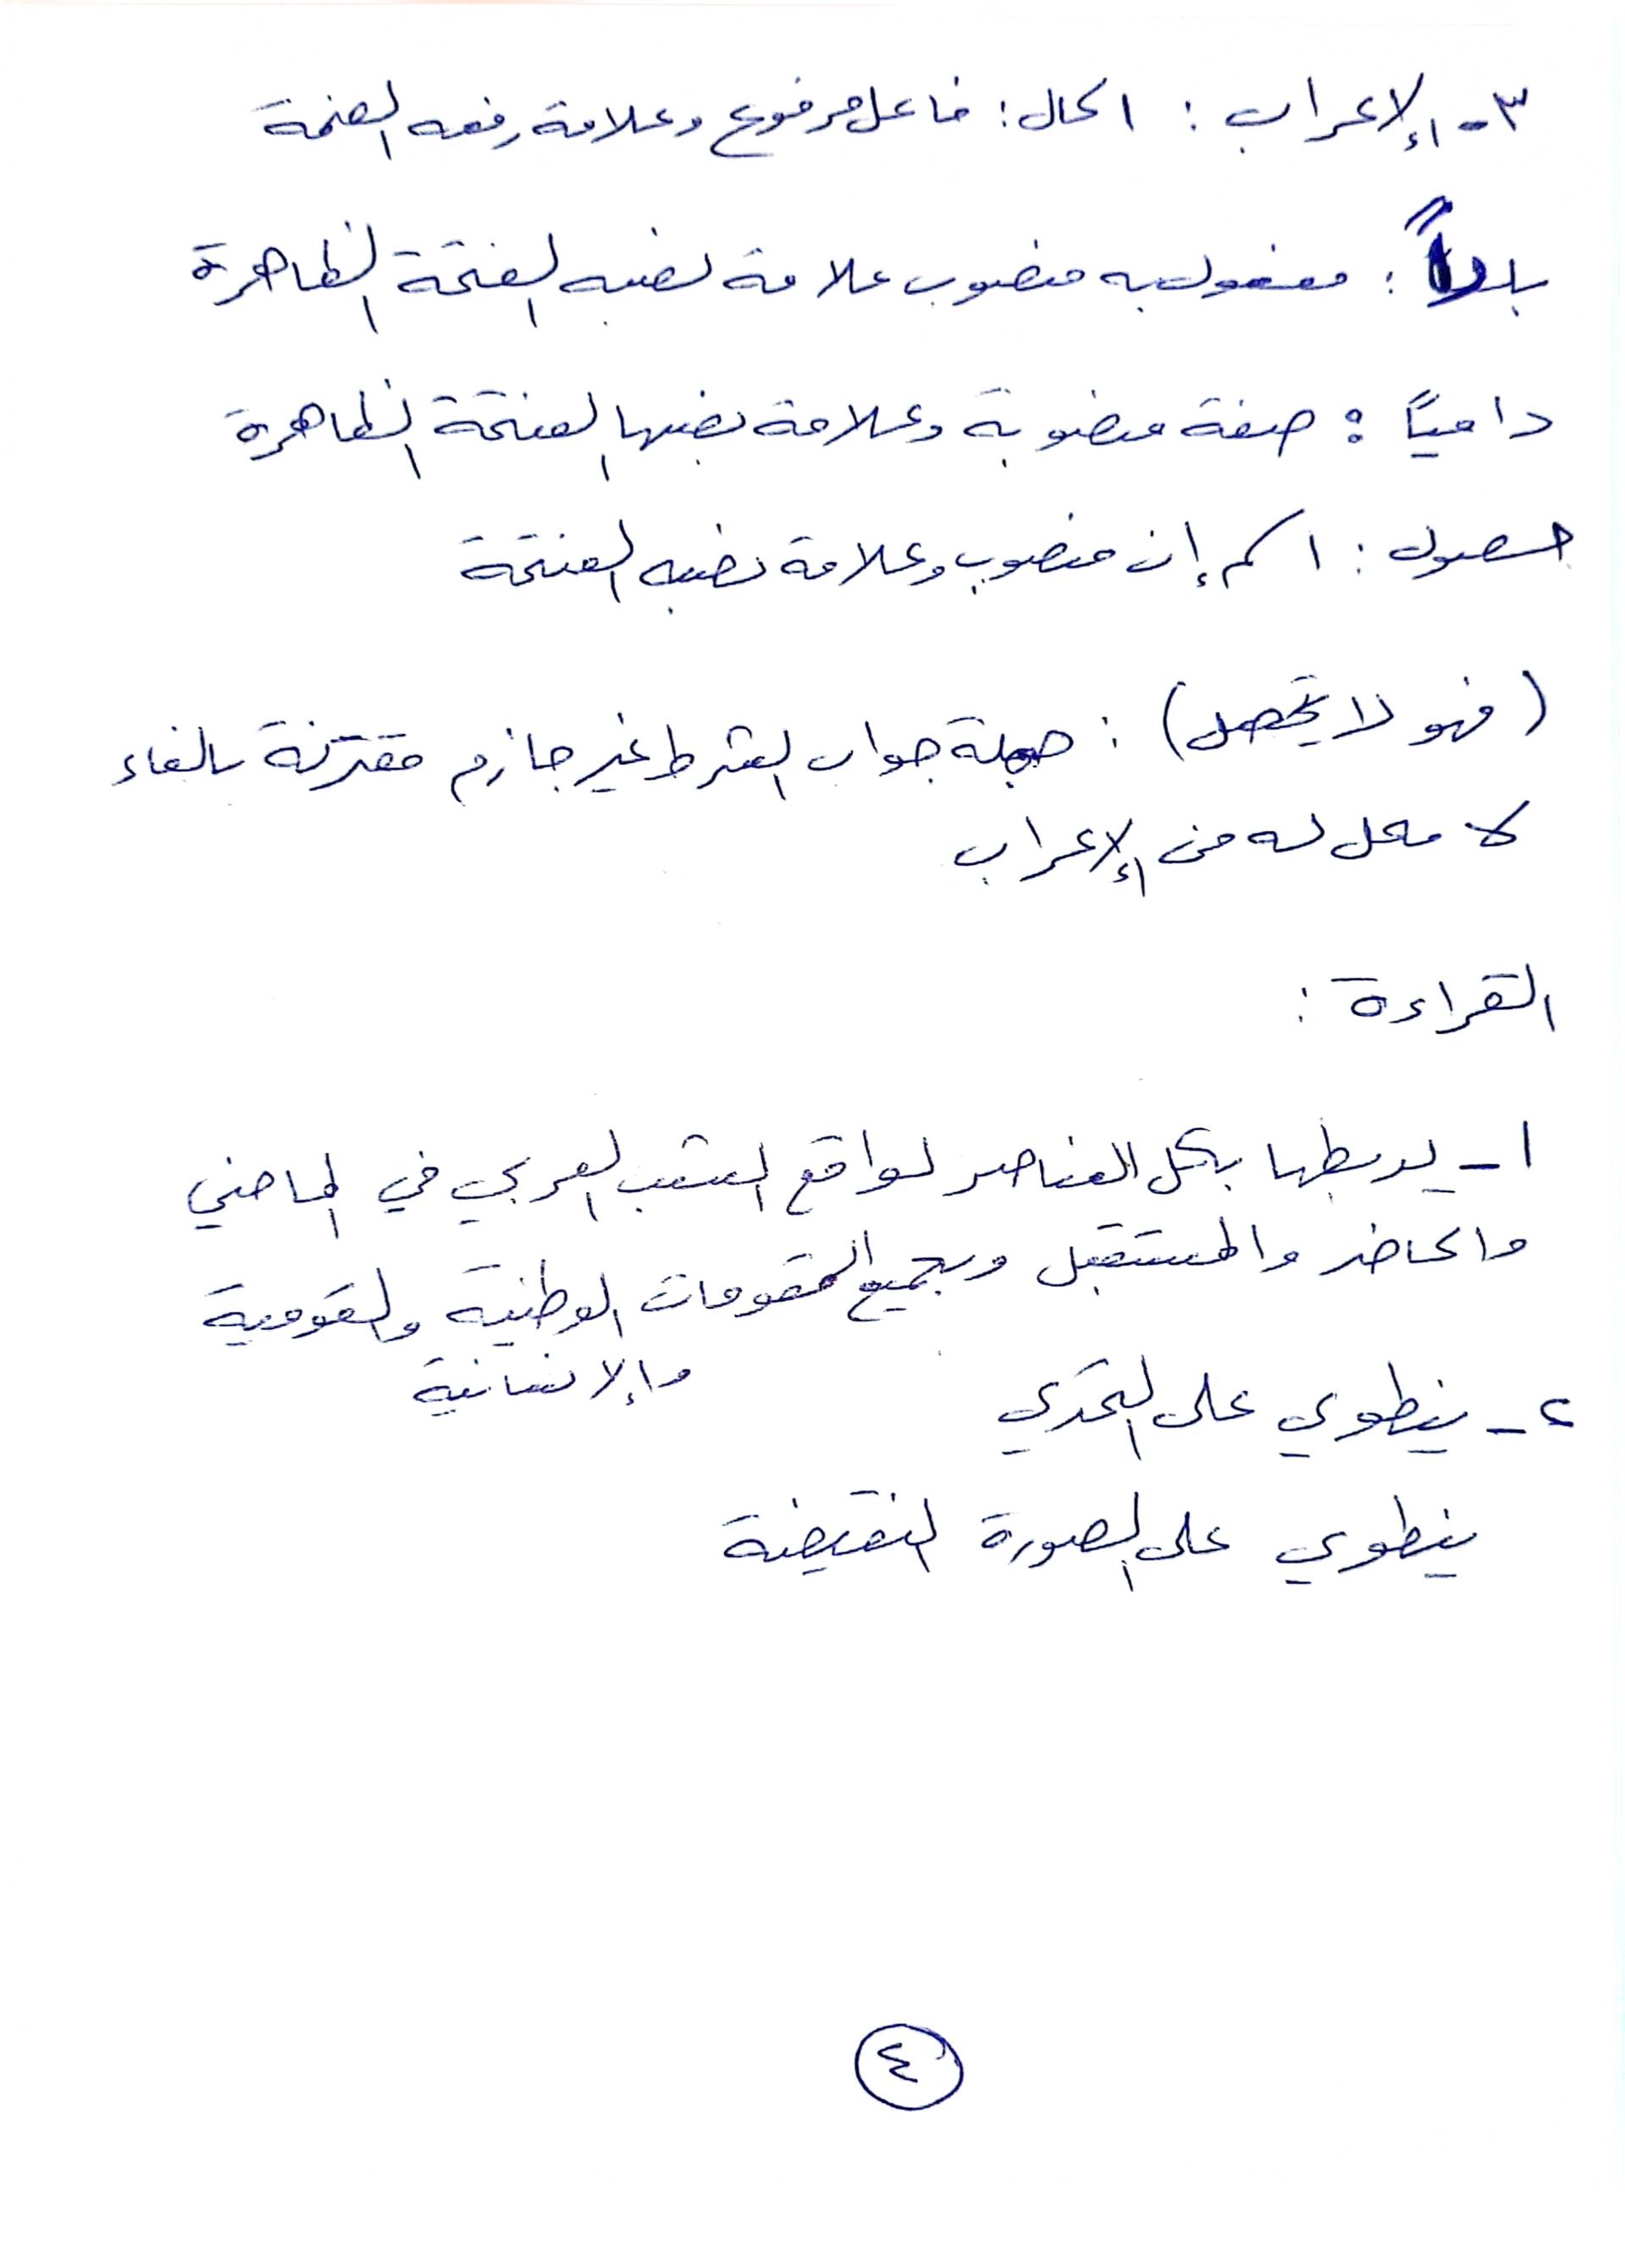 ٣- الإعراب : الحال : فاعل مرفوع وعلامة رفعه الضمة
بلداً : مفعول به منصوب علامة نصبه الفتحة الظاهرة
دامياً : صفة منصوبة وعلامة نصبها الفتحة الظاهرة
حصول : اسم إن منصوب وعلامة نصبه الفتحة
(فهو لا يحصل) : جملة جواب الشرط غير جازم مقترنة بالفاء
لا محل له من الإعراب
القراءة :
١- يربطها بكل العناصر لواقع الشعب العربي في الماضي
والحاضر والمستقبل وبجميع المقومات الوطنية والقومية
والإنسانية
٢- ينطوي على التحدي
ينطوي على الصورة النقيضة
٤